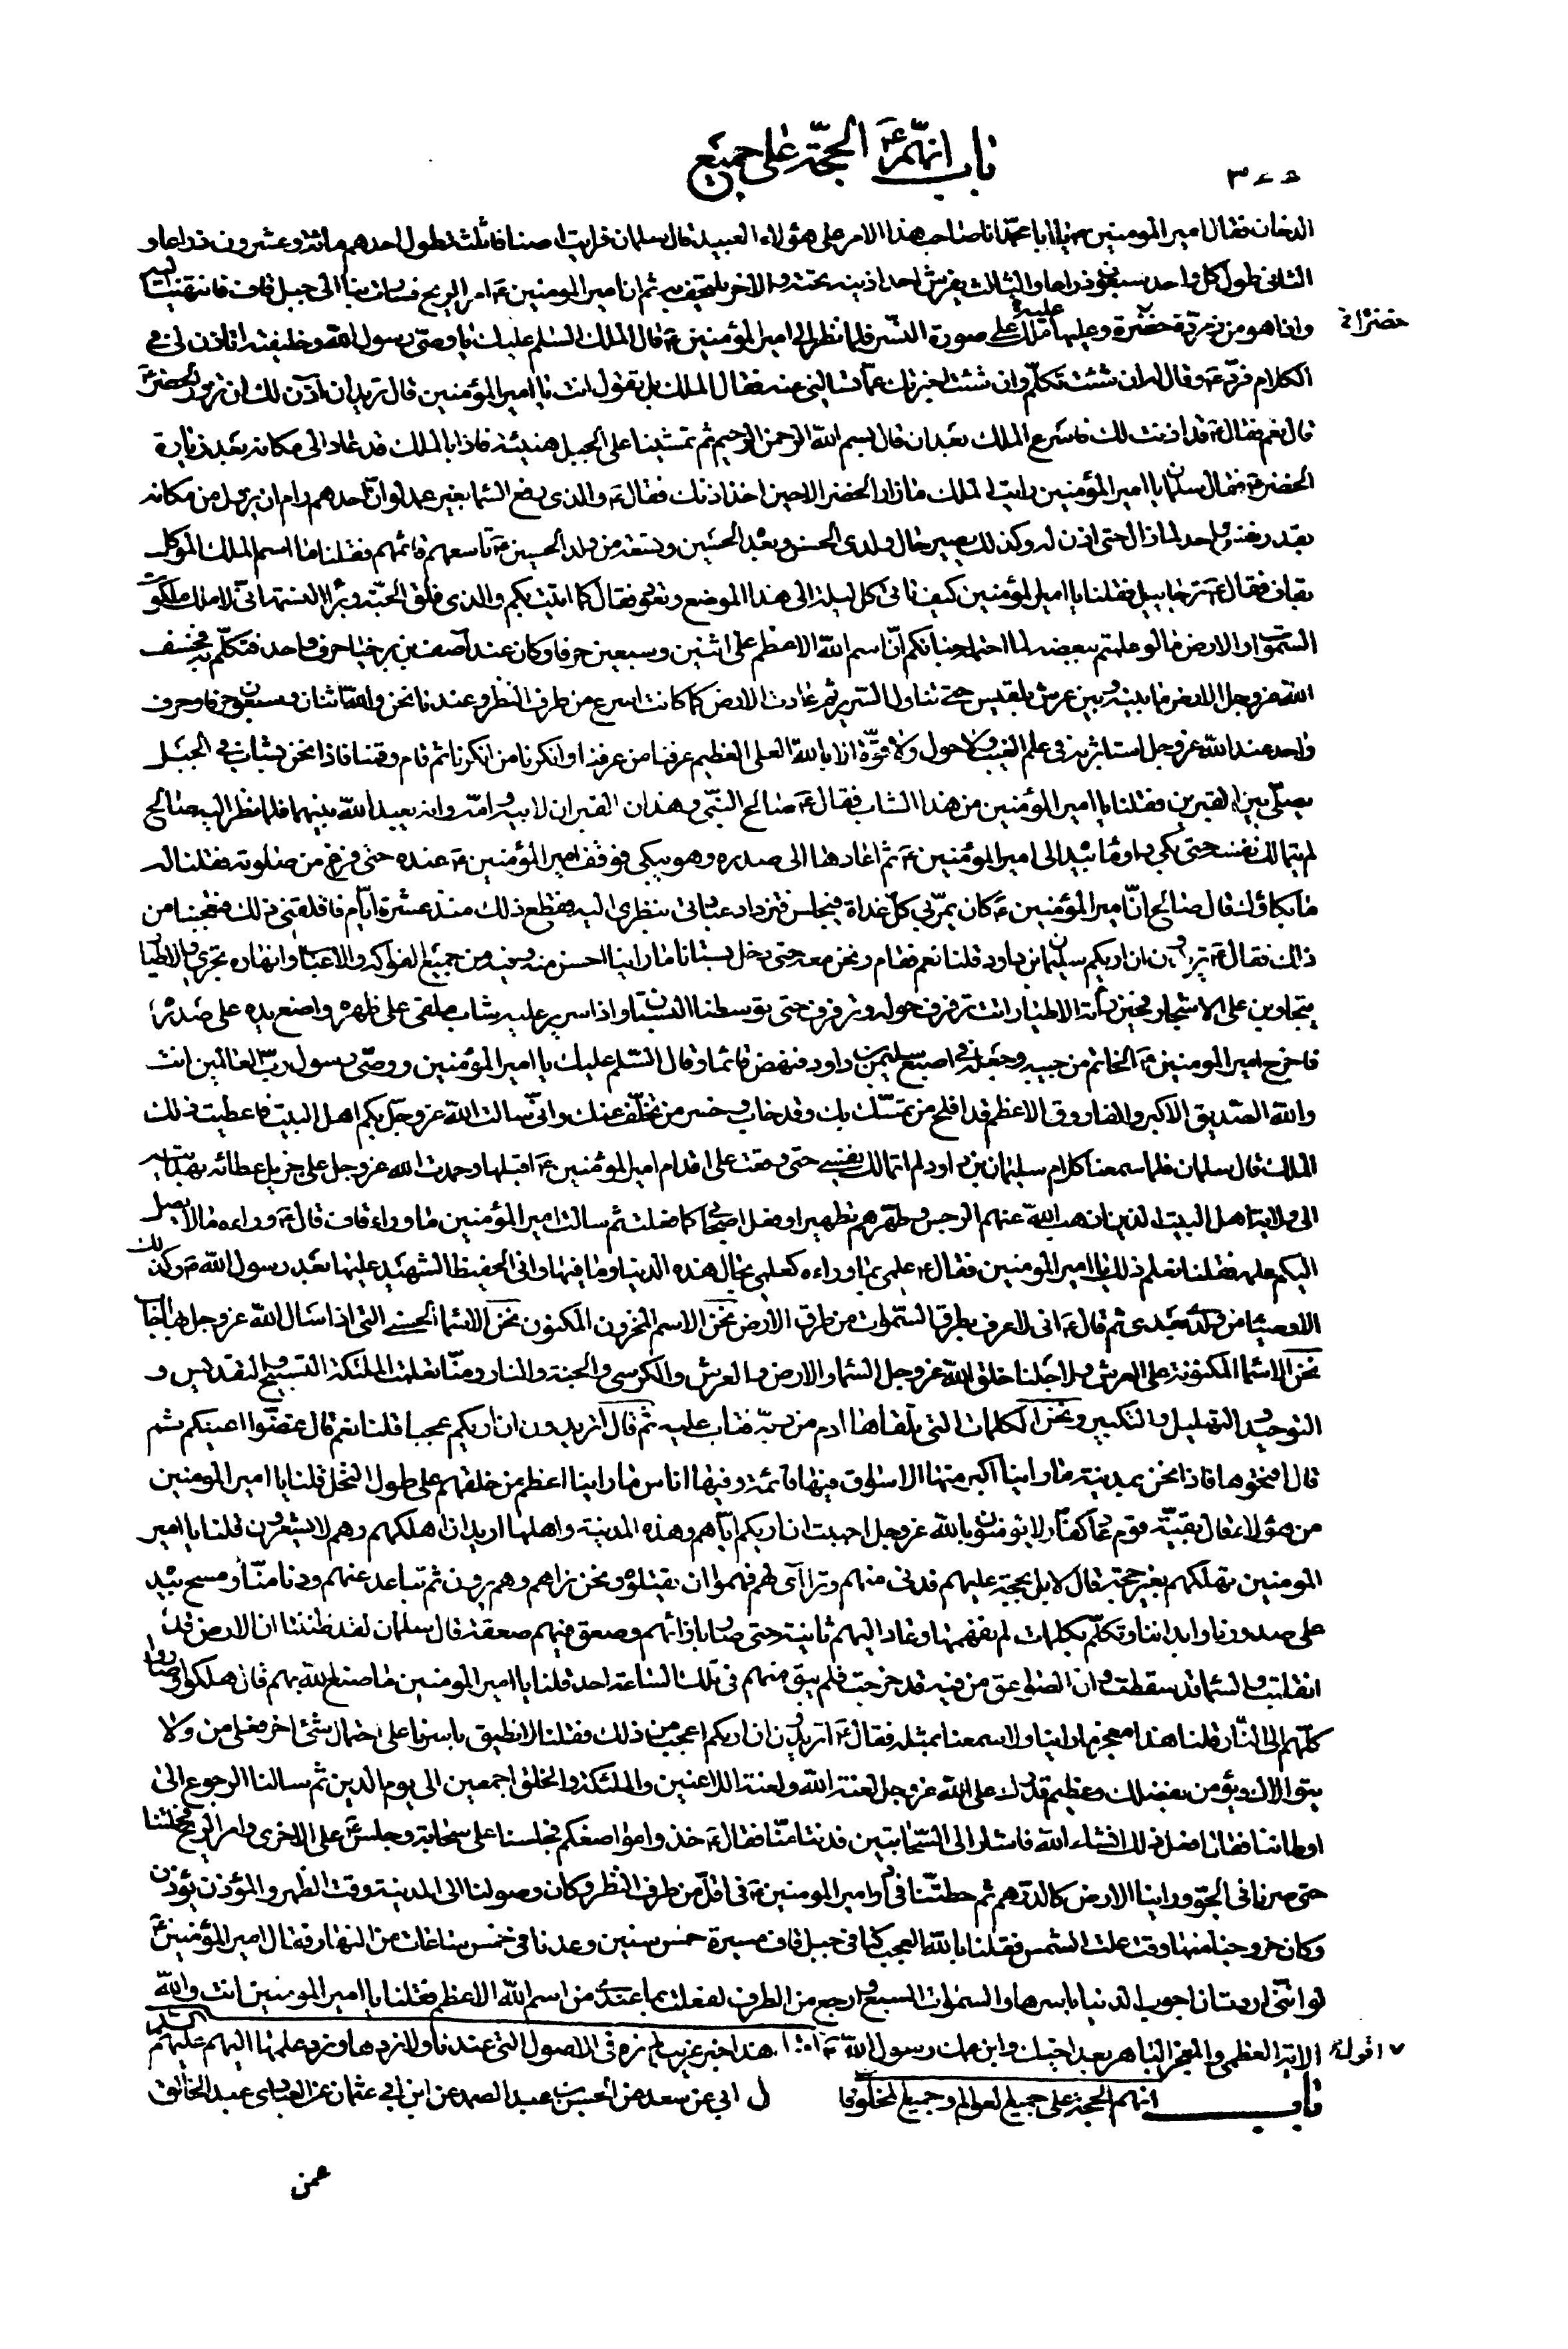 باب انهم ع الحجة على جميع
الدخان فقال امير المؤمنين ع يا ابا محمد انا صاحب هذا الامر على هؤلاء العبيد قال سلمان فرايت اصنافا ثلثة طول احدهم مائة وعشرون ذراعا و
الثانى طول كل واحد سبعون ذراعا والثالث يفرش احد اذنيه تحته والاخرى يلتحف به ثم ان امير المؤمنين ع امر الريح فسارت بنا الى جبل قاف فانتهيت اليه
واذا هو من زمردة خضرة وعليها ملك على صورة النسر فلما نظر الى امير المؤمنين ع قال الملك السلم عليك يا وصى رسول الله وخليفته اتاذن لى فى
الكلام فرد ع وقال له ان شئت تكلم وان شئت اخبرتك عما تسالنى عنه فقال الملك بل تقول انت يا امير المؤمنين قال تريد ان آذن لك ان تزور الخضر ع
قال نعم فقال ع قد اذنت لك فاسرع الملك بعد ان قال بسم الله الرحمن الرحيم ثم تمشينا على الجبل هنيئة فاذا بالملك قد عاد الى مكانه بعد زيارة
الخضر ع فقال سلمان يا امير المؤمنين رايت الملك ما زار الخضر الا حين اخذ اذنك فقال ع والذى رفع السماء بغير عمد لو ان احدهم رام ان يزول من مكانه
بقدر نفس واحد لما زال حتى اذن له وكذلك يصير حال ولدى الحسن وبعده الحسين وتسعة من ولد الحسين ع تاسعهم قائمهم فقلنا ما اسم الملك الموكل
بقاف فقال ع ترحابيل فقلنا يا امير المؤمنين كيف تاتى كل ليلة الى هذا الموضع وتعود فقال كما اتيت بكم والذى فلق الحبة وبرا النسمة انى لاملك ملكوت
السموات والارض ما لو علمتم ببعضه لما احتمله جنانكم ان اسم الله الاعظم على اثنين وسبعين حرفا وكان عند آصف بن برخيا حرف واحد فتكلم به فخسف
الله عز وجل الارض ما بينه وبين عرش بلقيس حتى تناول السرير ثم عادت الارض كما كانت اسرع من طرف النظر وعندنا نحن والله اثنان وسبعون حرفا وحرف
واحد عند الله عز وجل استاثر به فى علم الغيب ولا حول ولا قوة الا بالله العلى العظيم عرفنا من عرفنا وانكرنا من انكرنا ثم قام وقمنا فاذا نحن بشاب فى الجبل
يصلى بين قبرين فقلنا يا امير المؤمنين من هذا الشاب فقال ع صالح النبى وهذان القبران لابيه وامه وانه يعبد الله بينهما فلما نظر اليه صالح
لم يتمالك نفسه حتى بكى واومأ بيده الى امير المؤمنين ع ثم اعادها الى صدره وهو يبكى فوقف امير المؤمنين ع عنده حتى فرغ من صلوته فقلنا له
ما بكاؤك قال صالح ان امير المؤمنين ع كان يمر بى كل غداة فيجلس فتزداد عبادتى بنظرى اليه فقطع ذلك منذ عشرة ايام فاقلقنى ذلك فتعجبنا من
ذلك فقال ع تريدون ان اريكم سليمان بن داود قلنا نعم فقام ونحن معه حتى دخل بستانا ما راينا احسن منه وفيه من جميع الفواكه والاعناب وانهاره تجرى والاطيار
يتجاوبن على الاشجار فحين راته الاطيار اتت ترفرف حوله حتى توسطنا البستان واذا سرير عليه شاب ملقى على ظهره واضع يده على صدره
فاخرج امير المؤمنين ع الخاتم من جيبه وجعله فى اصبع سليمن بن داود فنهض قائما وقال السلم عليك يا امير المؤمنين ووصى رسول رب العالمين انت
والله الصديق الاكبر والفاروق الاعظم قد افلح من تمسك بك وقد خاب وخسر من تخلف عنك وانى سالت الله عز وجل بكم اهل البيت فاعطيت ذلك
الملك قال سلمان فلما سمعنا كلام سليمان بن داود لم اتمالك نفسى حتى وقعت على اقدام امير المؤمنين ع اقبلها وحمدت الله عز وجل على جزيل عطائه بهدايته
الى ولاية اهل البيت الذين اذهب الله عنهم الرجس وطهرهم تطهيرا وفعل اصحابى كما فعلت ثم سالت امير المؤمنين ما وراء قاف قال ع وراءه ما لا يصل
اليكم علمه فقلنا تعلم ذلك يا امير المؤمنين فقال ع علمى بما وراءه كعلمى بحال هذه الدنيا وما فيها وانى الحفيظ الشهيد عليها بعد رسول الله ص وكذلك
الاوصياء من ولدى بعدى ثم قال ع انى لاعرف بطرق السموات من طرق الارض نحن الاسم المخزون المكنون نحن الاسماء الحسنى التى اذا سال الله عز وجل بها اجاب
نحن الاسماء المكتوبة على العرش ولاجلنا خلق الله عز وجل السماء والارض والعرش والكرسى والجنة والنار ومنا تعلمت الملئكة التسبيح والتقديس و
التوحيد والتهليل والتكبير ونحن الكلمات التى تلقاها ادم من ربه فتاب عليه ثم قال اتريدون ان اريكم عجبا قلنا نعم قال غضوا اعينكم ثم
قال افتحوها فاذا نحن بمدينة ما راينا اكبر منها الاسواق فيها قائمة وفيها اناس ما راينا اعظم من خلقهم على طول النخل قلنا يا امير المؤمنين
من هؤلاء قال بقية قوم عاد كفار لا يؤمنون بالله عز وجل احببت ان اريكم اياهم وهذه المدينة واهلها اريد ان اهلكهم وهم لا يشعرون قلنا يا امير
المؤمنين تهلكهم بغير حجة قال لا بل بحجة عليهم فدنى منهم وتراآى لهم فهموا ان يقتلوه ونحن نراهم وهم يرون ثم تباعد عنهم ودنا منا ومسح بيده
على صدورنا وابداننا وتكلم بكلمات لم نفهمها وعاد اليهم ثانية حتى صار بازائهم وصعق فيهم صعقة قال سلمان لقد ظننا ان الارض قد
انقلبت والسماء قد سقطت وان الصواعق من فيه قد خرجت فلم يبق منهم فى تلك الساعة احد قلنا يا امير المؤمنين ما صنع الله بهم قال هلكوا وصاروا
كلهم الى النار قلنا هذا معجز ما راينا ولا سمعنا بمثله فقال ع اتريدون ان اريكم اعجب من ذلك فقلنا لا نطيق باسرنا على احتمال شئ اخر فعلى من لا
يتوالاك ويؤمن بفضلك وعظيم قدرك على الله عز وجل لعنة الله ولعنة اللاعنين والملئكة والخلق اجمعين الى يوم الدين ثم سالنا الرجوع الى
اوطاننا فقال افعل ذلك انشاء الله فاشار الى السحابتين فدنتا منا فقال ع خذوا مواضعكم فجلسنا على سحابة وجلس ع على الاخرى وامر الريح فحملتنا
حتى صرنا فى الجو وراينا الارض كالدرهم ثم حطتنا فى دار امير المؤمنين ع فى اقل من طرف النظر وكان وصولنا الى المدينة وقت الظهر والمؤذن يؤذن
وكان خروجنا منها وقت علت الشمس فقلنا بالله العجب كنا فى جبل قاف مسيرة خمس سنين وعدنا فى خمس ساعات من النهار فقال امير المؤمنين ع
لو اننى اردت ان اجوب الدنيا باسرها والسموات السبع وارجع من الطرف لفعلت بما عندى من اسم الله الاعظم فقلنا يا امير المؤمنين انت والله
الاية العظمى والمعجز الباهر بعد اخيك وابن عمك رسول الله ص هذا خبر غريب لم نره فى الاصول التى عندنا ولا نردها ونرد علمها اليهم عليهم السلم
باب انهم الحجة على جميع العوالم وجميع المخلوقات ل ابى عن سعد عن الحسن بن عبد الصمد عن ابن ابى عثمان عن العبادى عبد الخالق
عمن